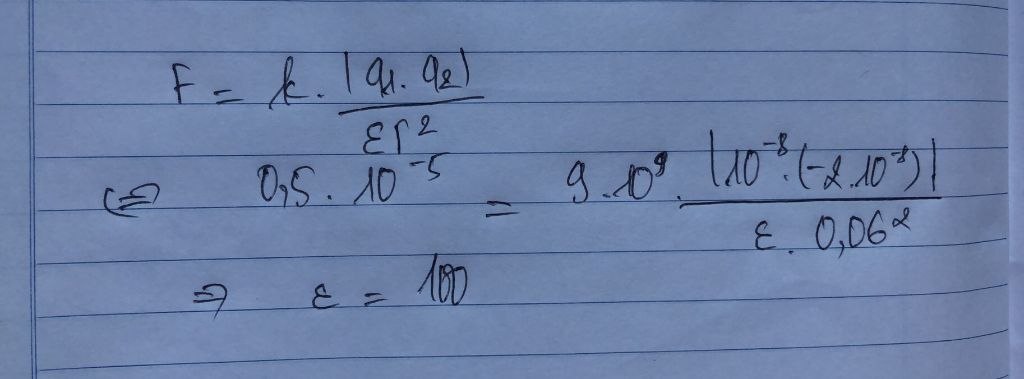 F = k. |q1. q2| / εr²
⇔ 0,5. 10⁻⁵ = 9.10⁹. |10⁻⁸.(-2.10⁻⁸)| / ε. 0,06²
⇒ ε = 100